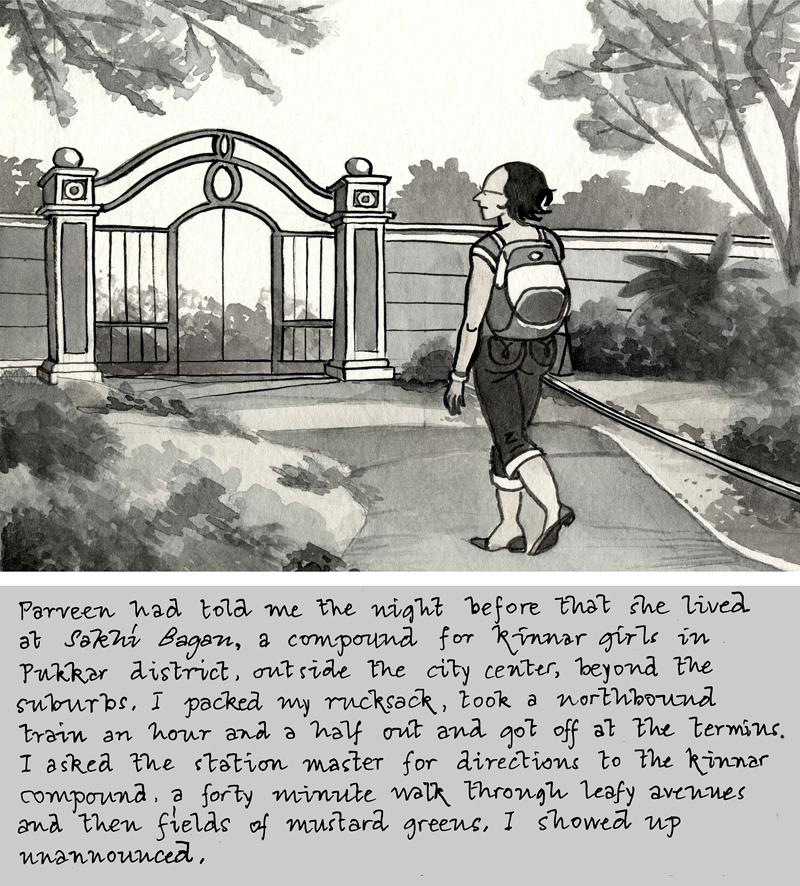 Parveen had told me the night before that she lived
at Sakhi Bagan, a compound for kinnar girls in
Pukkar district, outside the city center, beyond the
suburbs. I packed my rucksack, took a northbound
train an hour and a half out and got off at the terminus.
I asked the station master for directions to the kinnar
compound, a forty minute walk through leafy avenues
and then fields of mustard greens. I showed up
unannounced.